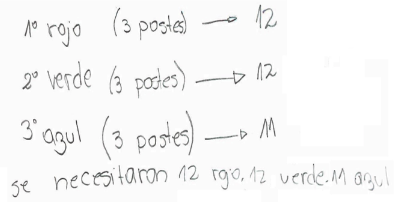 1º rojo (3 postes) → 12
2º verde (3 postes) → 12
3º azul (3 postes) → 11
se necesitaron 12 rojo, 12 verde. 11 azul